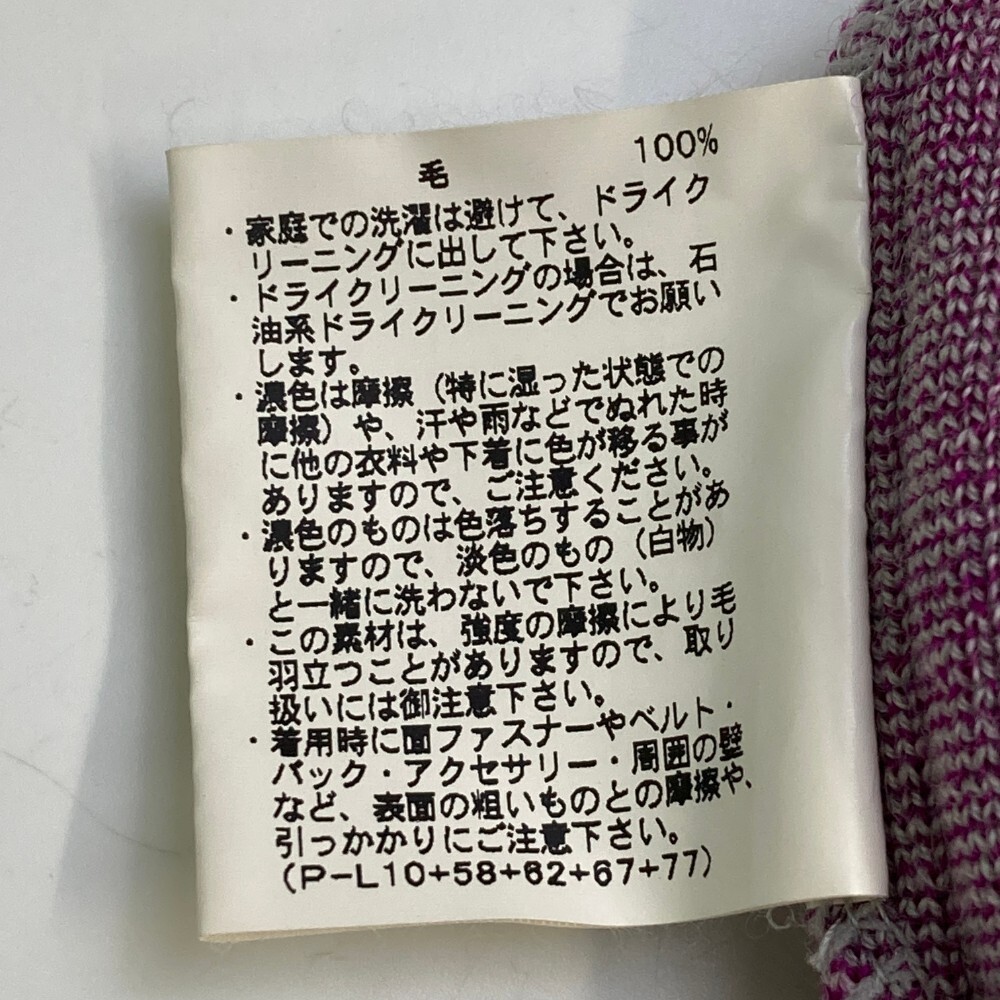 毛 100%
・家庭での洗濯は避けて、ドライク
リーニングに出して下さい。
・ドライクリーニングの場合は、石
油系ドライクリーニングでお願い
します。
・濃色は摩擦（特に湿った状態での
摩擦）や、汗や雨などでぬれた時
に他の衣料や下着に色が移る事が
ありますので、ご注意ください。
・濃色のものは色落ちすることがあ
りますので、淡色のもの（白物）
と一緒に洗わないで下さい。
・この素材は、強度の摩擦により毛
羽立つことがありますので、取り
扱いには御注意下さい。
・着用時に面ファスナーやベルト・
バック・アクセサリー・周囲の壁
など、表面の粗いものとの摩擦や、
引っかかりにご注意下さい。
(P-L10+58+62+67+77)